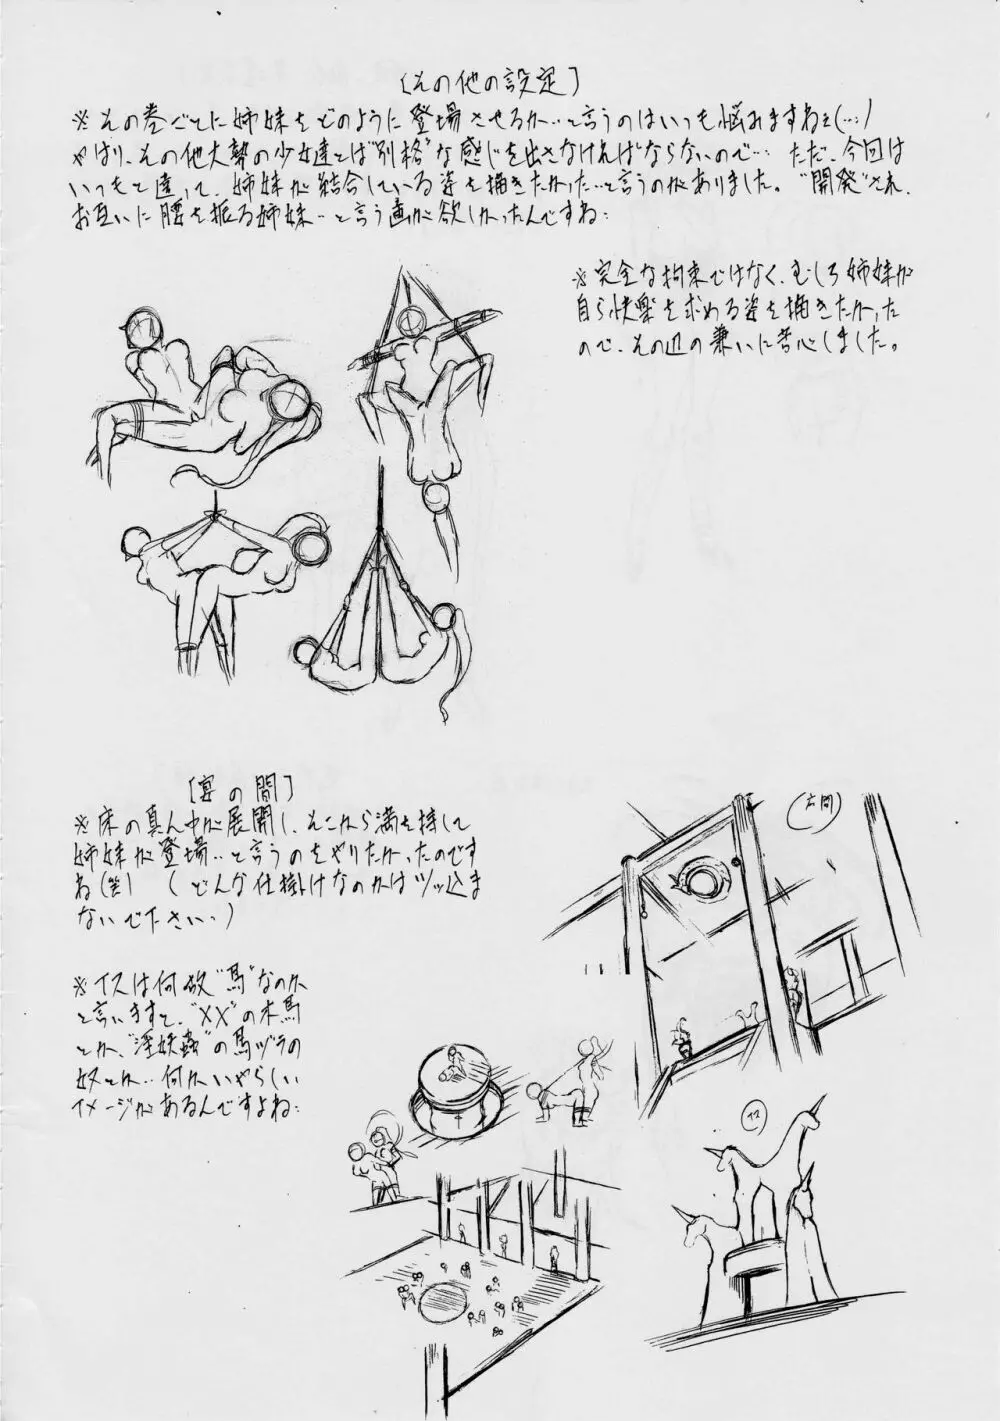 [その他の設定]
※その巻ごとに姉妹をどのように登場させるか…と言うのはいつも悩みますねぇ(…)
やはり、その他大勢の少女達とは"別格"な感じを出さなければならないので… ただ、今回は
いつもと違って、姉妹が結合している姿を描きたかった…と言うのがありました。"開発"され、
お互いに腰を振る姉妹…と言う画が欲しかったんですね…
※完全な拘束ではなく、むしろ姉妹が
自ら快楽を求める姿を描きたかった
ので、その辺の兼いに苦心しました。
[宴の間]
※床の真ん中が展開し、そこから満を持して
姉妹が登場…と言うのをやりたかったのです
ね(笑) (どんな仕掛けなのかはツッ込ま
ないで下さい…)
※イスは何故"馬"なのか
と言いますと、"XX"の木馬
とか、"淫妖蟲"の馬ヅラの
奴とか…何かいやらしい
イメージがあるんですよね…
広間
イス